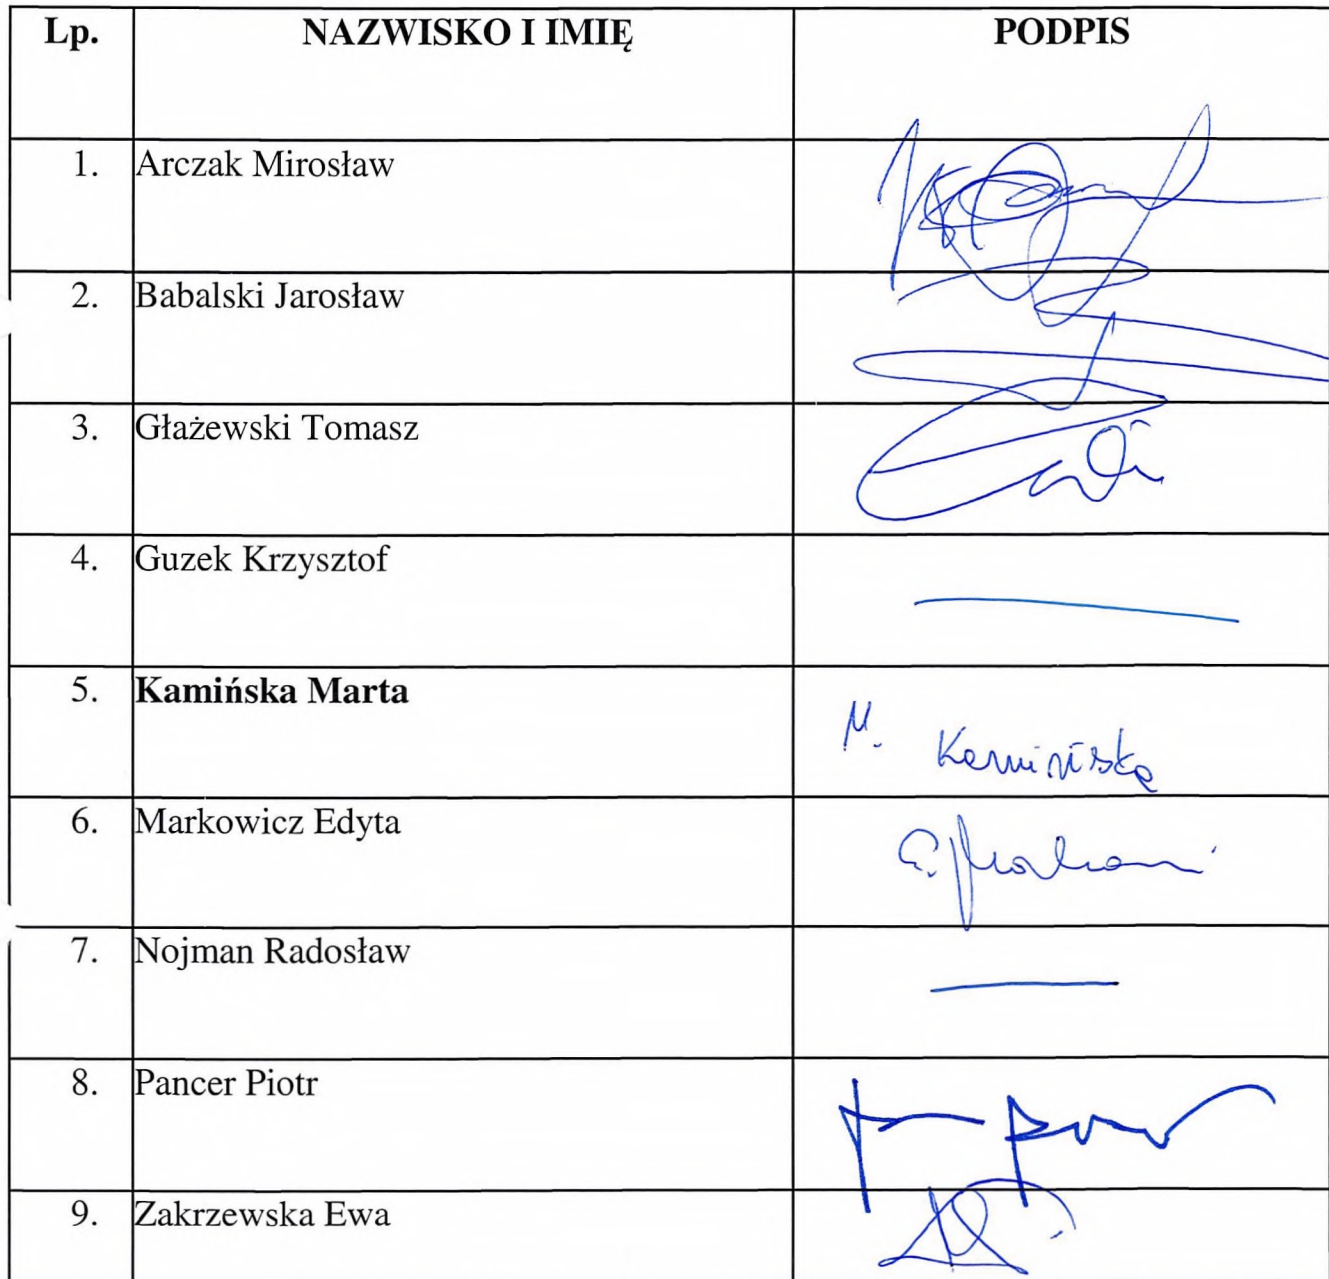 Lp. NAZWISKO I IMIĘ PODPIS
1. Arczak Mirosław
2. Babalski Jarosław
3. Głażewski Tomasz
4. Guzek Krzysztof
5. Kamińska Marta M. Kamińska
6. Markowicz Edyta
7. Nojman Radosław
8. Pancer Piotr
9. Zakrzewska Ewa